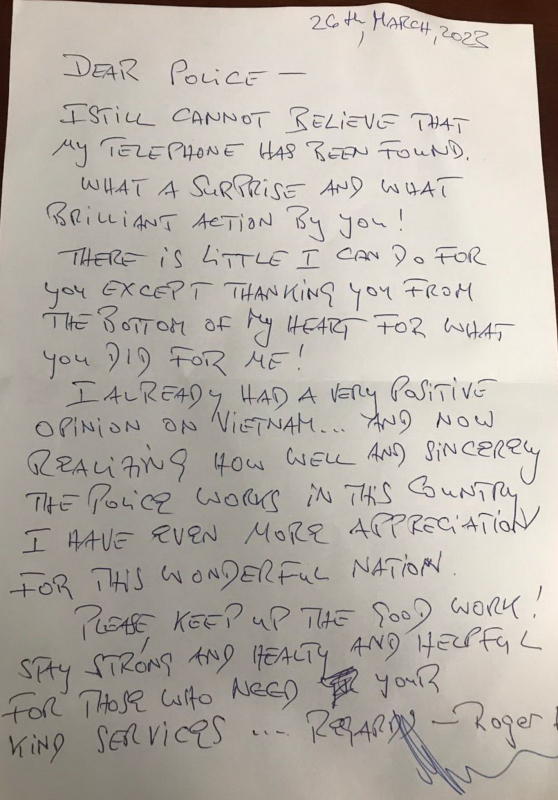 26th, MARCH, 2023
DEAR POLICE —
I STILL CANNOT BELIEVE THAT
MY TELEPHONE HAS BEEN FOUND.
WHAT A SURPRISE AND WHAT
BRILLIANT ACTION BY YOU!
THERE IS LITTLE I CAN DO FOR
YOU EXCEPT THANKING YOU FROM
THE BOTTOM OF MY HEART FOR WHAT
YOU DID FOR ME!
I ALREADY HAD A VERY POSITIVE
OPINION ON VIETNAM... AND NOW
REALIZING HOW WELL AND SINCERELY
THE POLICE WORKS IN THIS COUNTRY
I HAVE EVEN MORE APPRECIATION
FOR THIS WONDERFUL NATION.
PLEASE, KEEP UP THE GOOD WORK!
STAY STRONG AND HEALTY AND HELPFUL
FOR THOSE WHO NEED YOUR
KIND SERVICES ... REGARDS — Roger